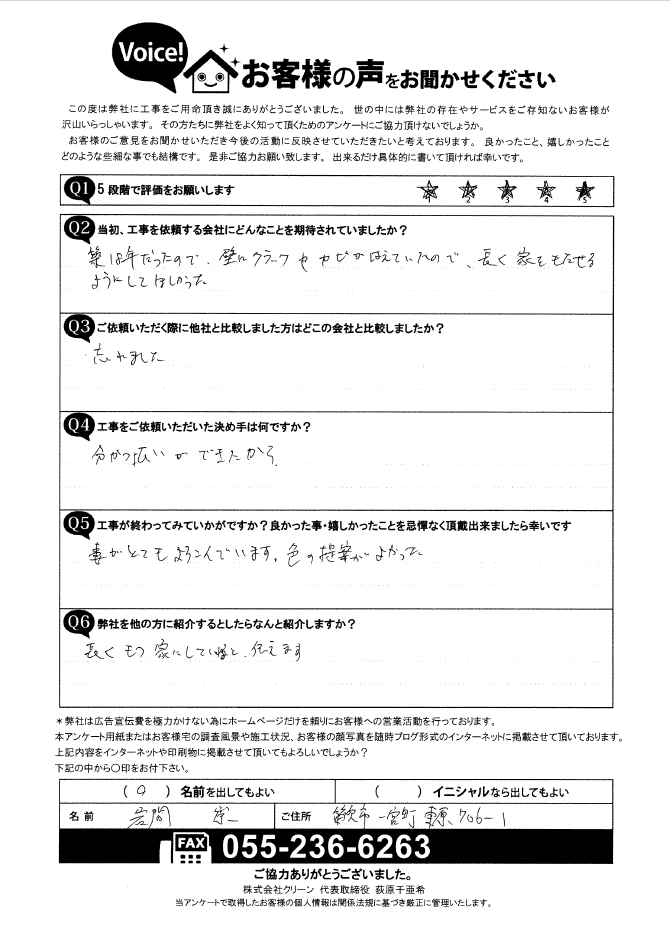 Voice!
お客様の声をお聞かせください
この度は弊社に工事をご用命頂き誠にありがとうございました。 世の中には弊社の存在やサービスをご存知ないお客様が
沢山いらっしゃいます。 その方たちに弊社をよく知って頂くためのアンケートにご協力頂けないでしょうか。
お客様のご意見をお聞かせいただき今後の活動に反映させていただきたいと考えております。 良かったこと、嬉しかったこと
どのような些細な事でも結構です。 是非ご協力お願い致します。 出来るだけ具体的に書いて頂ければ幸いです。
Q1 5段階で評価をお願いします
1 2 3 4 5
Q2 当初、工事を依頼する会社にどんなことを期待されていましたか?
築18年だったので、壁にクラックやカビがはえていたので、長く家をもたせる
ようにしてほしかった
Q3 ご依頼いただく際に他社と比較しました方はどこの会社と比較しましたか?
忘れました
Q4 工事をご依頼いただいた決め手は何ですか?
分かつ払いができたから
Q5 工事が終わってみていかがですか?良かった事・嬉しかったことを忌憚なく頂戴出来ましたら幸いです
妻がとてもよろこんでいます。色の提案がよかった
Q6 弊社を他の方に紹介するとしたらなんと紹介しますか?
長くもつ家にしてくれると、伝えます
*弊社は広告宣伝費を極力かけない為にホームページだけを頼りにお客様への営業活動を行っております。
本アンケート用紙またはお客様宅の調査風景や施工状況、お客様の顔写真を随時ブログ形式のインターネットに掲載させて頂いております。
上記内容をインターネットや印刷物に掲載させて頂いてもよろしいでしょうか?
下記の中から〇印をお付下さい。
( ○ ) 名前を出してもよい ( ) イニシャルなら出してもよい
名前 岩間 ご住所 一宮町 706-1
FAX 055-236-6263
ご協力ありがとうございました。
株式会社クリーン 代表取締役 荻原千亜希
当アンケートで取得したお客様の個人情報は関係法規に基づき厳正に管理いたします。